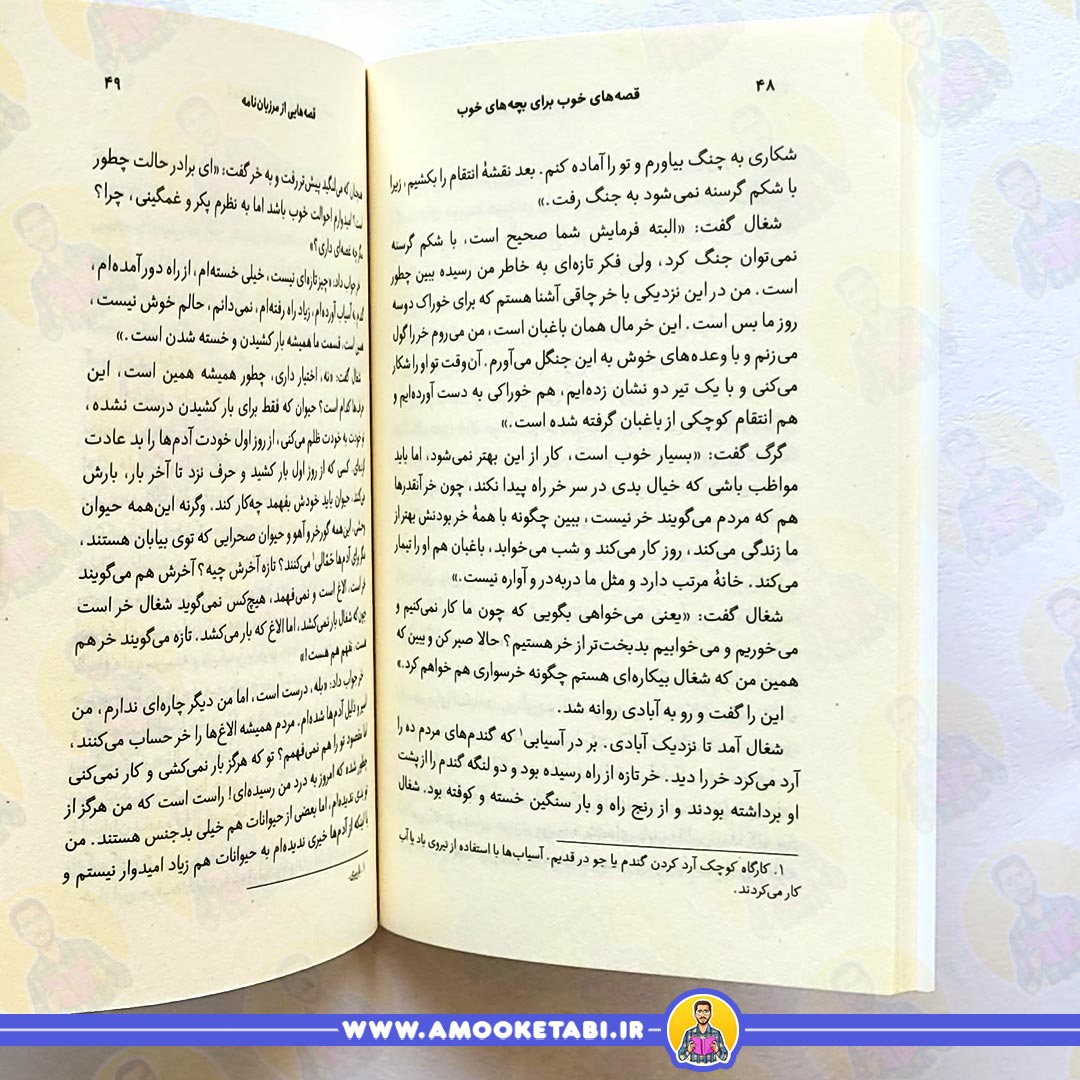 ۴۸
قصه‌های خوب برای بچه‌های خوب
شکاری به چنگ بیاورم و تو را آماده کنم. بعد نقشهٔ انتقام را بکشیم، زیرا
با شکم گرسنه نمی‌شود به جنگ رفت.»
شغال گفت: «البته فرمایش شما صحیح است، با شکم گرسنه
نمی‌توان جنگ کرد، ولی فکر تازه‌ای به خاطر من رسیده ببین چطور
است. من در این نزدیکی با خر چاقی آشنا هستم که برای خوراک دوسه
روز ما بس است. این خر مال همان باغبان است، من می‌روم خر را گول
می‌زنم و با وعده‌های خوش به این جنگل می‌آورم. آن‌وقت تو او را شکار
می‌کنی و با یک تیر دو نشان زده‌ایم، هم خوراکی به دست آورده‌ایم و
هم انتقام کوچکی از باغبان گرفته شده است.»
گرگ گفت: «بسیار خوب است، کار از این بهتر نمی‌شود، اما باید
مواظب باشی که خیال بدی در سر خر راه پیدا نکند، چون خر آنقدرها
هم که مردم می‌گویند خر نیست، ببین چگونه با همهٔ خر بودنش بهتر از
ما زندگی می‌کند، روز کار می‌کند و شب می‌خوابد، باغبان هم او را تیمار
می‌کند. خانهٔ مرتب دارد و مثل ما دربه‌در و آواره نیست.»
شغال گفت: «یعنی می‌خواهی بگویی که چون ما کار نمی‌کنیم و
می‌خوریم و می‌خوابیم بدبخت‌تر از خر هستیم؟ حالا صبر کن و ببین که
همین من که شغال بیکاره‌ای هستم چگونه خرسواری هم خواهم کرد.»
این را گفت و رو به آبادی روانه شد.
شغال آمد تا نزدیک آبادی. بر در آسیابی۱ که گندم‌های مردم ده را
آرد می‌کرد خر را دید. خر تازه از راه رسیده بود و دو لنگه گندم را از پشت
او برداشته بودند و از رنج راه و بار سنگین خسته و کوفته بود. شغال
۱. کارگاه کوچک آرد کردن گندم یا جو در قدیم. آسیاب‌ها با استفاده از نیروی باد یا آب
کار می‌کردند.
۴۹
قصه‌هایی از مرزبان‌نامه
همچنان که می‌لنگید پیش‌تر رفت و به خر گفت: «ای برادر حالت چطور
است؟ امیدوارم احوالت خوب باشد اما به نظرم پکر و غمگینی، چرا؟
مگر چه غصه‌ای داری؟»
خر جواب داد: «چیز تازه‌ای نیست، خیلی خسته‌ام، از راه دور آمده‌ام،
گندم به آسیاب آورده‌ام، زیاد راه رفته‌ام، نمی‌دانم، حالم خوش نیست،
همین است، قسمت ما همیشه بار کشیدن و خسته شدن است.»
شغال گفت: «نه، اختیار داری، چطور همیشه همین است، این
حرف‌ها کدام است؟ حیوان که فقط برای بار کشیدن درست نشده،
تو خودت به خودت ظلم می‌کنی، از روز اول خودت آدم‌ها را بد عادت
کرده‌ای. کسی که از روز اول بار کشید و حرف نزد تا آخر بار، بارش
می‌کنند، حیوان باید خودش بفهمد چه‌کار کند. وگرنه این‌همه حیوان
وحشی، این‌همه گورخر و آهو و حیوان صحرایی که توی بیابان هستند،
مگر برای آدم‌ها حمّالی۱ می‌کنند؟ تازه آخرش چیه؟ آخرش هم می‌گویند
خر است، الاغ است و نمی‌فهمد، هیچ‌کس نمی‌گوید شغال خر است
چون که شغال بار نمی‌کشد، اما الاغ که بار می‌کشد. تازه می‌گویند خر هم
هست، نفهم هم هست!»
خر جواب داد: «بله، درست است، اما من دیگر چاره‌ای ندارم، من
اسیر و ذلیل آدم‌ها شده‌ام. مردم همیشه الاغ‌ها را خر حساب می‌کنند،
اما مقصود تو را هم نمی‌فهمم؟ تو که هرگز بار نمی‌کشی و کار نمی‌کنی
چطور شده که امروز به درد من رسیده‌ای! راست است که من هرگز از
تو بدی ندیده‌ام، اما بعضی از حیوانات هم خیلی بدجنس هستند. من
با اینکه از آدم‌ها خیری ندیده‌ام به حیوانات هم زیاد امیدوار نیستم و
۱. باربری
WWW.AMOOKETABI.IR